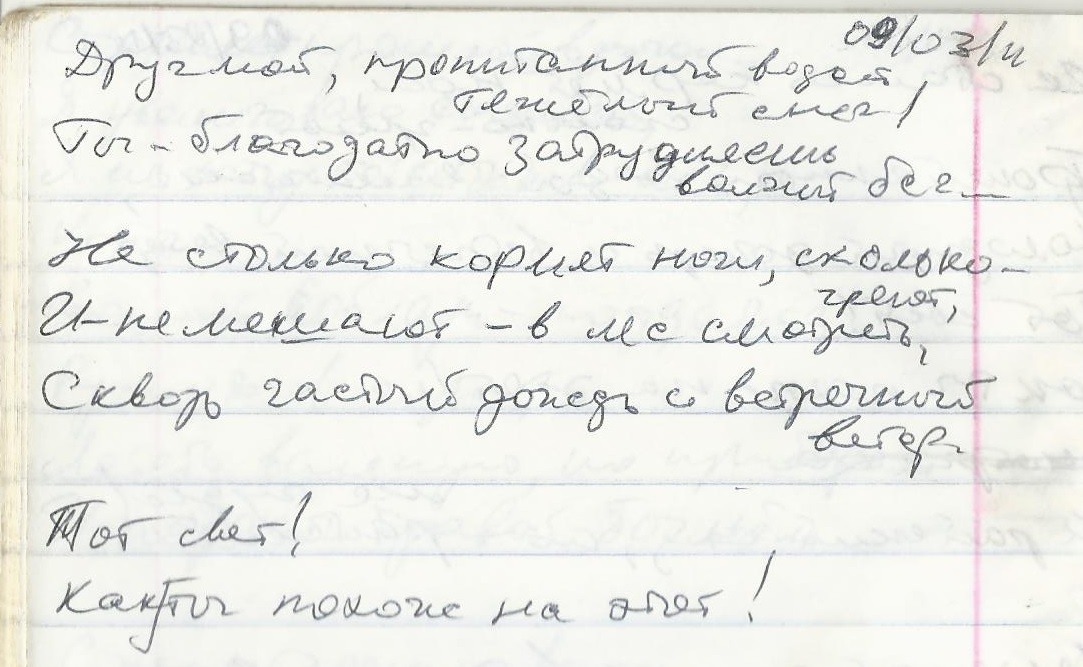 09/03/11
Друг мой, пропитанный водой,
тяжёлый снег!
Ты - благодатно затрудняешь
волчий бег —
Не столько кормят ноги, сколько -
греют,
И - не мешают - в лес смотреть,
Сквозь частый дождь и встречный
ветер.
Тот свет!
Как ты похож на этот!